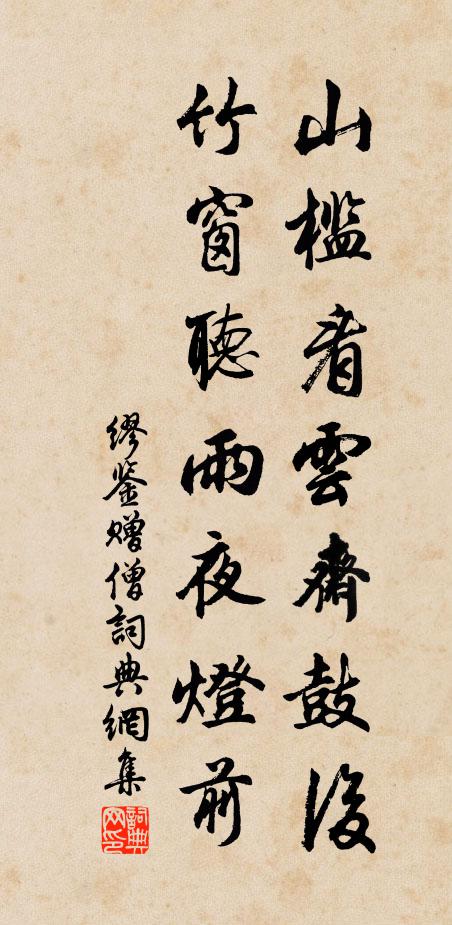 山檻看雲齋鼓後
竹窗聽雨夜燈前
繆鉴贈僧詞典網集
詞典網印